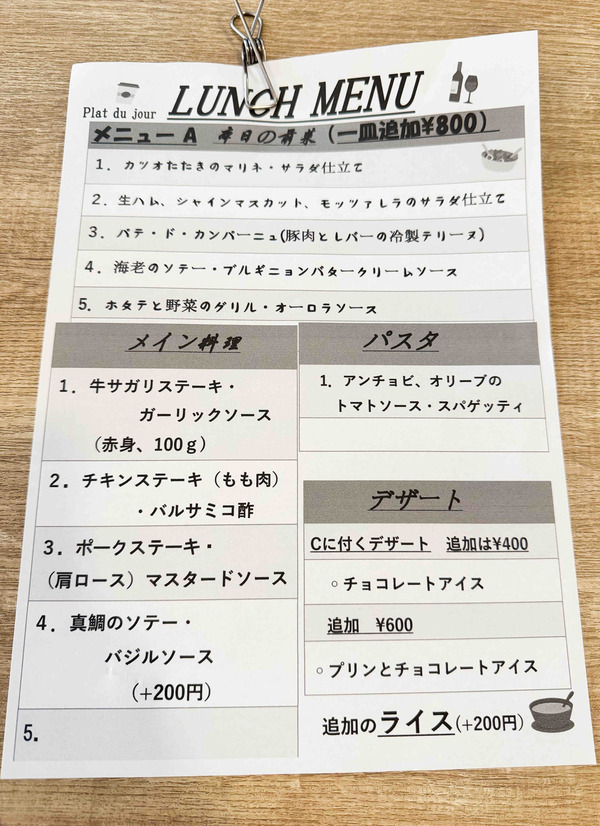 LUNCH MENU
Plat du jour
メニューA 本日の前菜（一皿追加¥800）
1. カツオたたきのマリネ・サラダ仕立て
2. 生ハム、シャインマスカット、モッツァレラのサラダ仕立て
3. パテ・ド・カンパーニュ(豚肉とレバーの冷製テリーヌ)
4. 海老のソテー・ブルギニョンバタークリームソース
5. ホタテと野菜のグリル・オーロラソース
メイン料理
1. 牛サガリステーキ・
ガーリックソース
（赤身、100g）
2. チキンステーキ（もも肉）
・バルサミコ酢
3. ポークステーキ・
（肩ロース）マスタードソース
4. 真鯛のソテー・
バジルソース
（+200円）
5.
パスタ
1. アンチョビ、オリーブの
トマトソース・スパゲッティ
デザート
Cに付くデザート 追加は¥400
○チョコレートアイス
追加 ¥600
○プリンとチョコレートアイス
追加のライス(+200円)